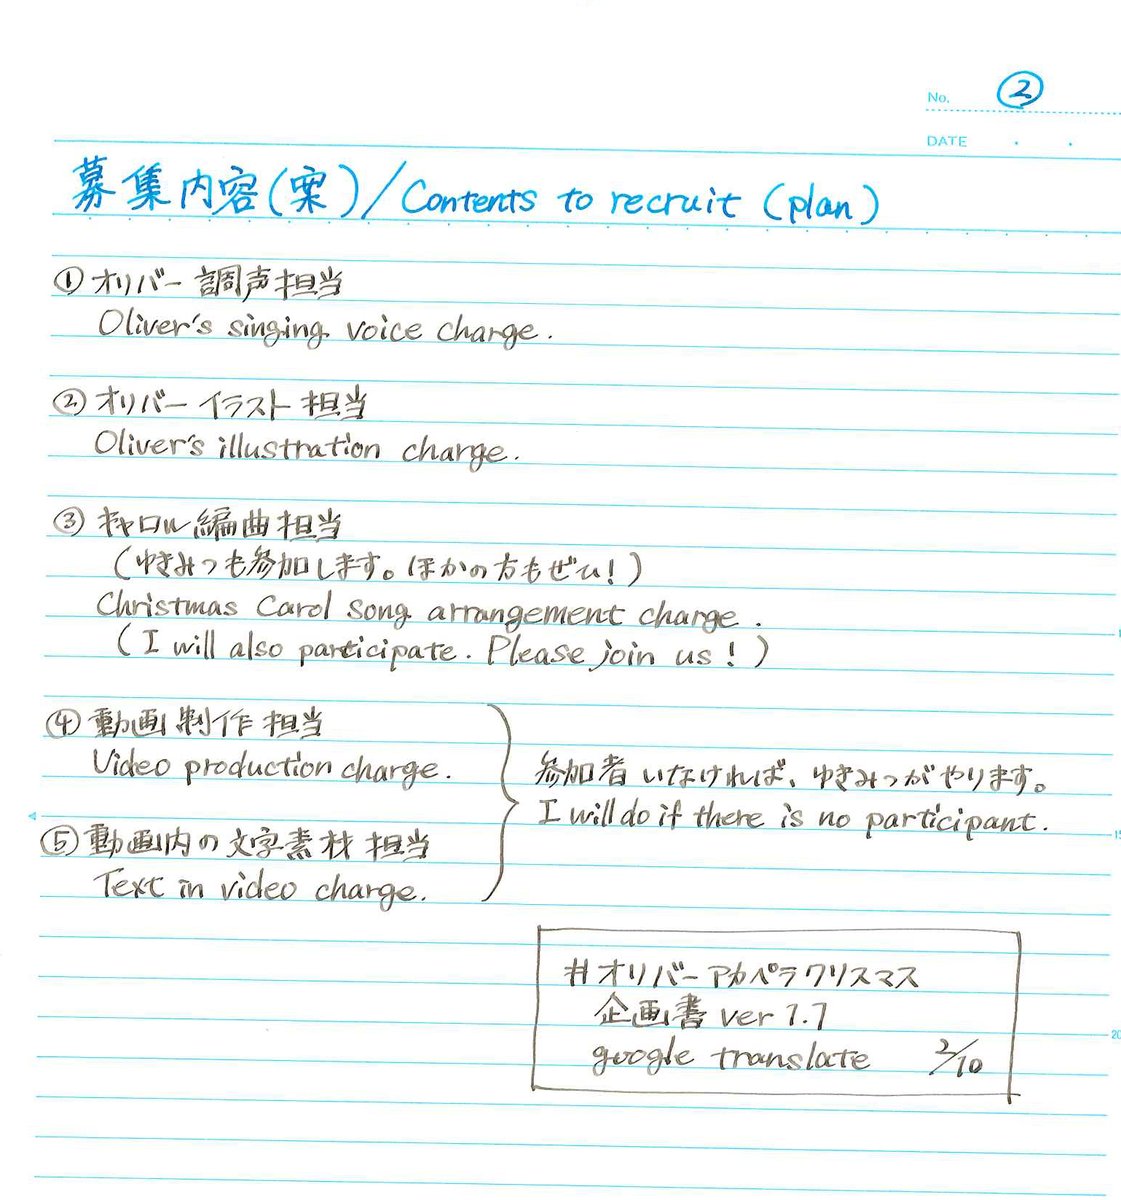 No. ②
DATE
募集内容(案)/Contents to recruit (plan)
① オリバー 調声担当
Oliver's singing voice charge.
② オリバー イラスト 担当
Oliver's illustration charge.
③ キャロル編曲担当
(ゆきみつも参加します。ほかの方もぜひ!)
Christmas Carol song arrangement charge.
(I will also participate. Please join us!)
④ 動画制作担当
Video production charge.
⑤ 動画内の文字素材担当
Text in video charge.
参加者いなければ、ゆきみつがやります。
I will do if there is no participant.
#オリバーアカペラクリスマス
企画書 ver 1.1
google translate 2/10
15
20